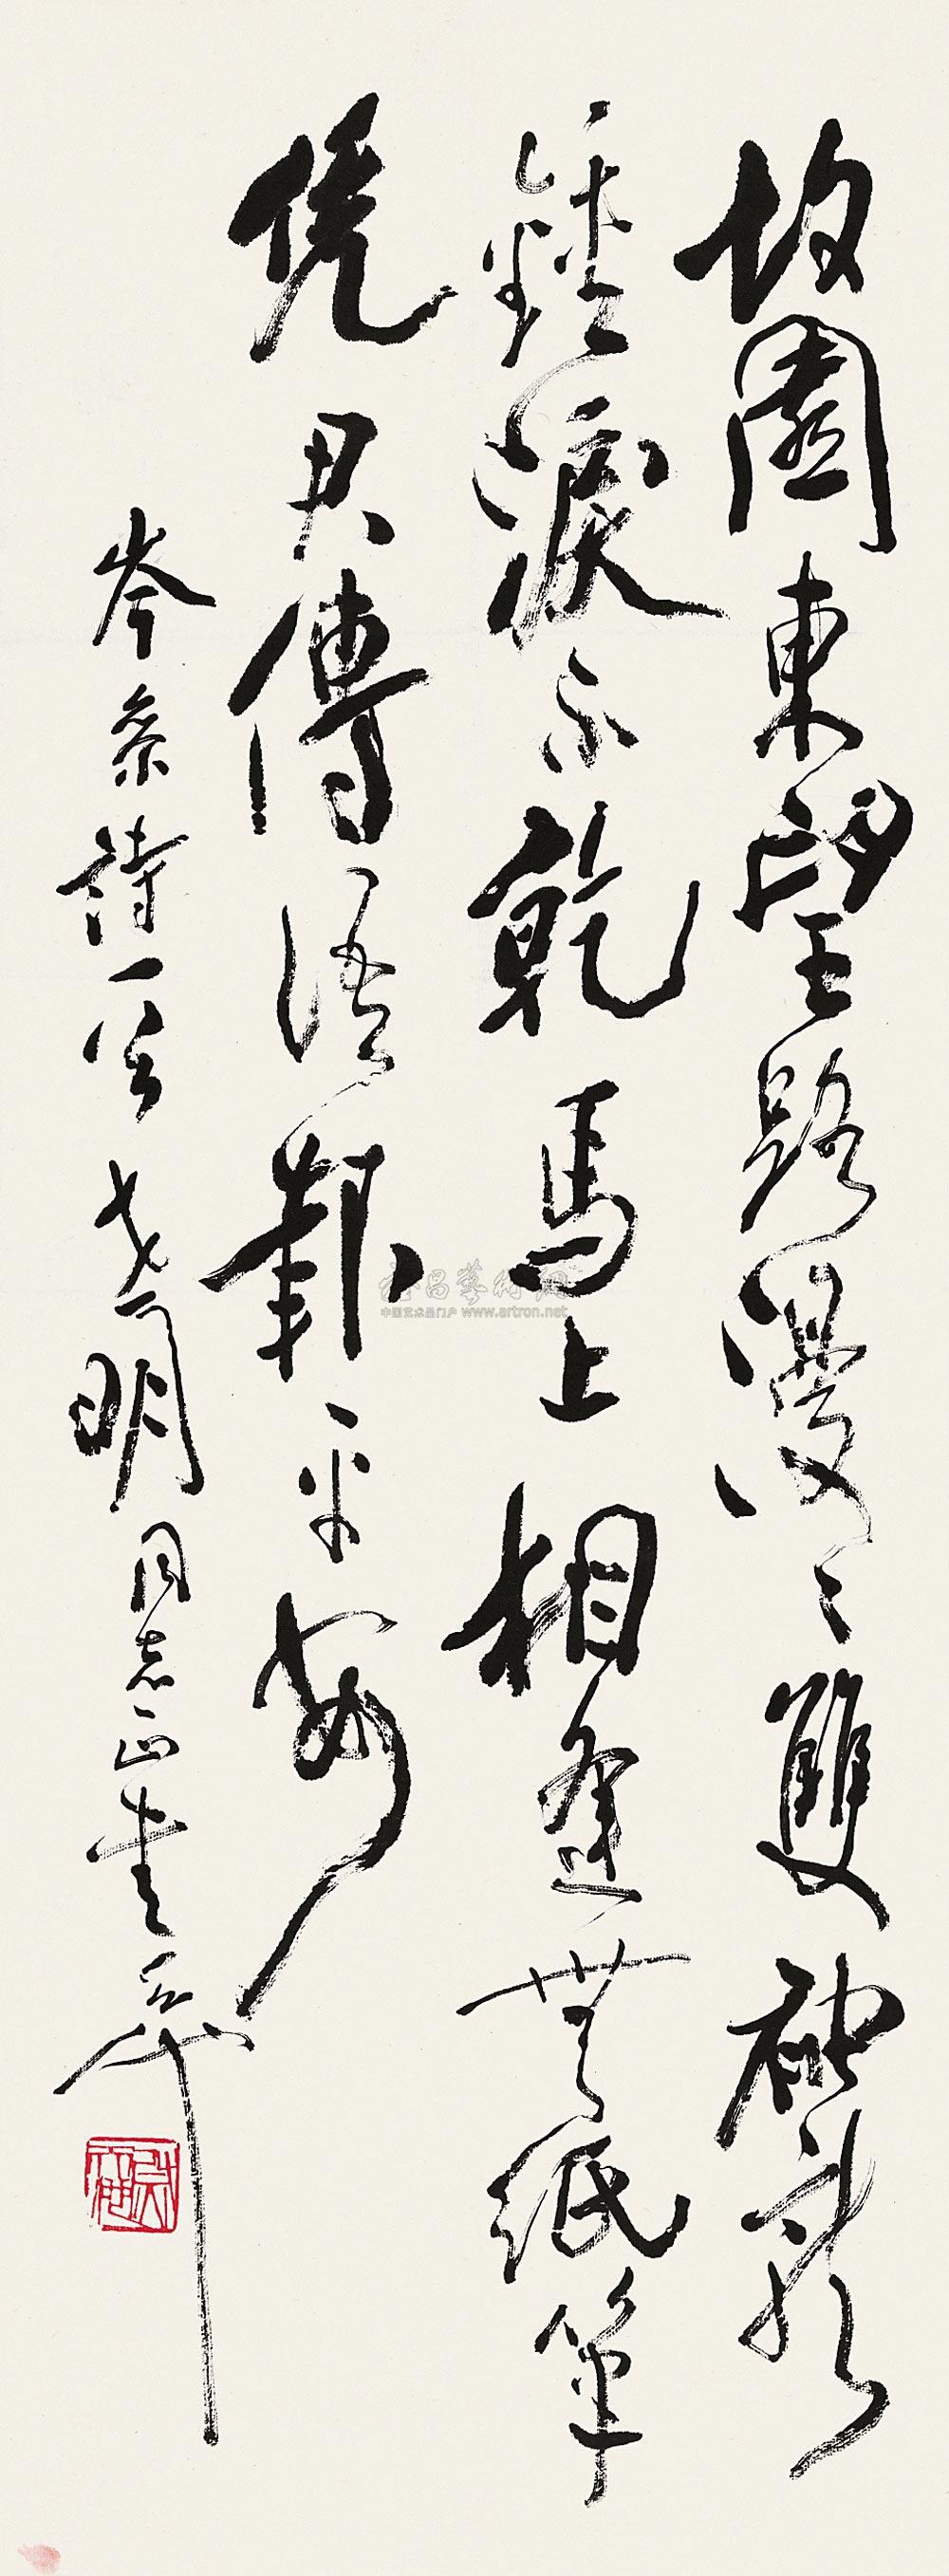 故園東望路漫々雙袖龍
鍾淚不乾馬上相逢無紙筆
凭君傳語報平安
岑參詩一首 明同志正書
雅昌藝術网
中国艺术品门户 www.artron.net